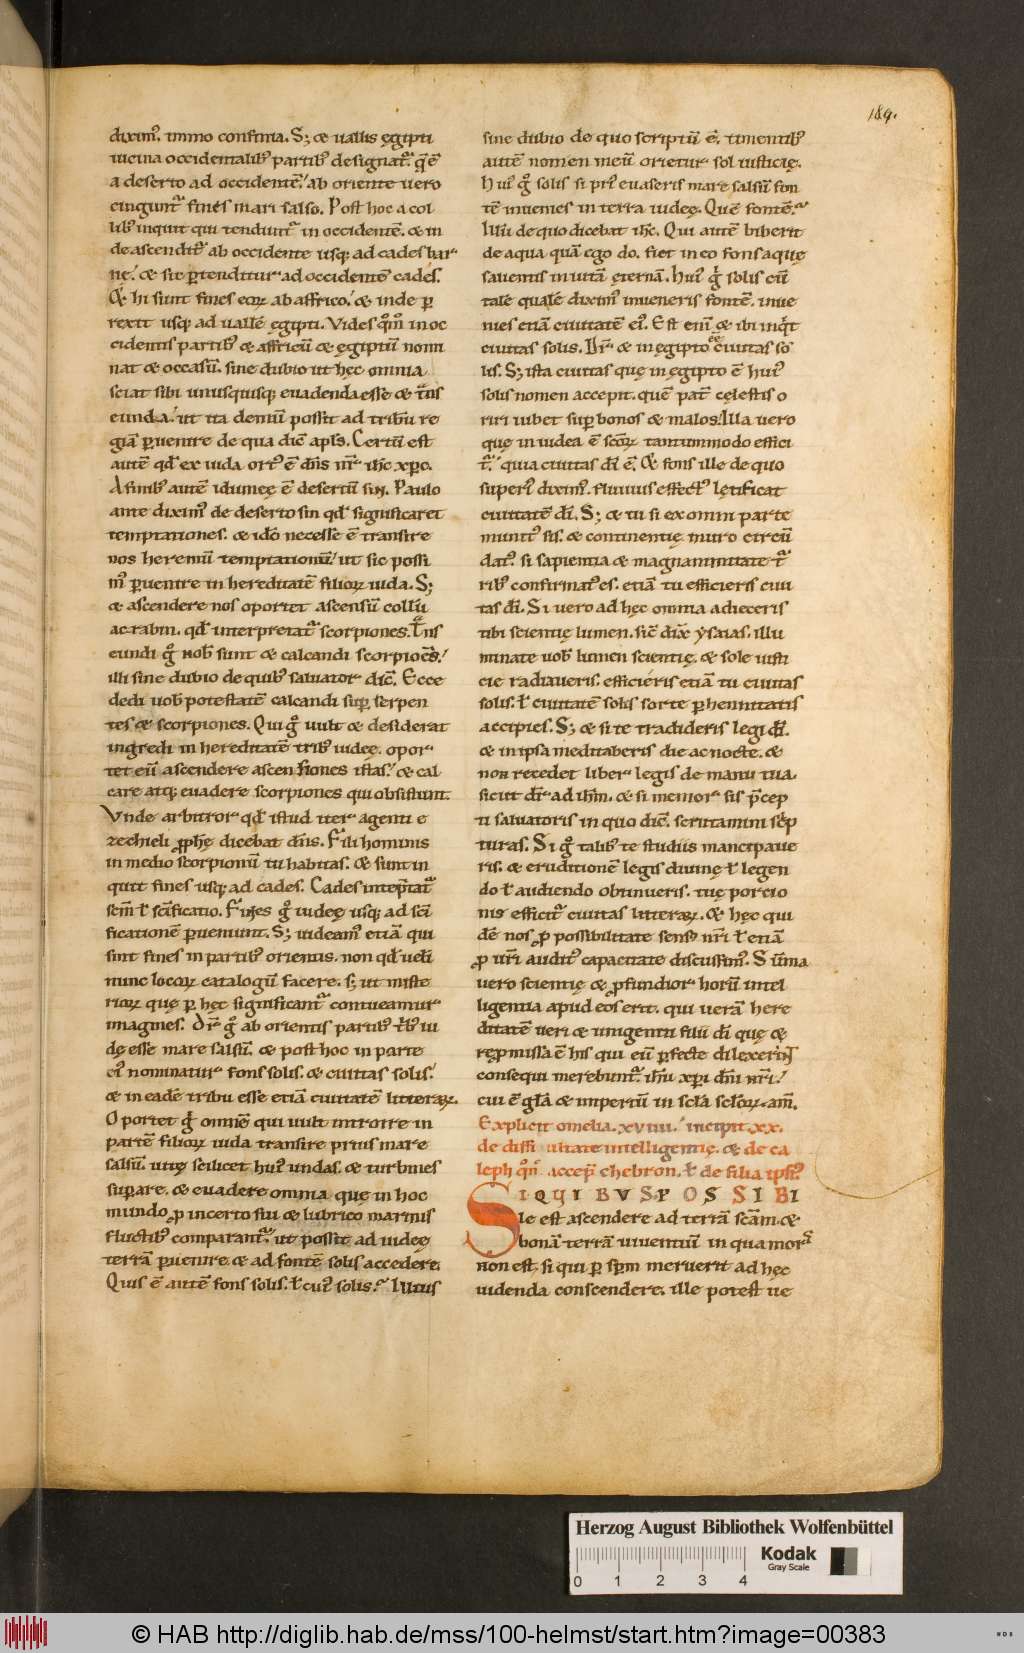 189.
dixim᷒. immo confinia. S; & uallis ęgipti
uicina occidentalib᷒ partib᷒ designat᷑. q̄ ē
a deserto ad occidentē. ab oriente uero
cingunt᷑ fines mari salso. Post hoc a col
lib᷒ inquit qui tendunt᷑ in occidentē. & in
de ascendit᷑ ab occidente usq; ad cades bar
ne. & sic ꝑtenditur ad occidentē cades.
& hi sunt fines eoꝝ ab affrico. & inde ꝑ
rexit usq; ad uallē ęgipti. Vides qm̊ in oc
cidentis partib᷒ & affricū & ęgiptū nomi
nat & occasū. sine dubio ut hęc omnia
sciat sibi unusquisq; euadenda esse & t̄ns
eunda. ut ita demū possit ad tribū re
giā ꝑuenire de qua dic̄ apl̄s. Certū est
autē qđ ex iuda ort᷒ ē dn̄s nr̄ ih̄c xp̄c.
A finib᷒ autē idumeę ē desertū sin. Paulo
ante dixim᷒ de deserto sin qđ significaret
temptationes. & idō necesse ē transire
nos heremū temptationū. ut sic possi
m᷒ ꝑuenire in hereditatē filioꝝ iuda. S;
& ascendere nos oportet ascensū collis
acrabin. qđ interpretat᷑ scorpiones. T̄ns
eundi gͦ nob̄ sunt & calcandi scorpiones.
illi sine dubio de quib᷒ saluator dic̄. Ecce
dedi uob̄ potestatē calcandi suꝑ serpen
tes & scorpiones. Qui gͦ uult & desiderat
ingredi in hereditatē trib᷒ iudeę. opor
tet eū ascendere ascensiones istas. & cal
care atq; euadere scorpiones qui obsistunt.
Vnde arbitror qđ istud iter agenti e
zechieli ꝓphę dicebat dn̄s. Fili hominis
in medio scorpionū tu habitas. & sunt in
quit fines usq; ad cades. Cades intep̄tat᷑
sc̄m ł sc̄ificatio. Fines gͦ iudeę usq; ad sc̄i
ficationē ꝑueniunt. S; uideam᷒ etiā qui
sint fines in partib᷒ orientis. non qđ uelī
nunc locoꝝ catalogū facere. s; ut miste
rioꝝ que ꝑ hęc significant᷑ contueamur
imagines. Dr̄ gͦ ab orientis partib᷒ trib᷒ iu
dę esse mare salsū. & post hoc in parte
ei᷒ nominatur fons solis. & ciuitas solis.
& in eadē tribu esse etiā ciuitatē litteraꝝ.
Oportet gͦ omnē qui uult introire in
partē filioꝝ iuda transire prius mare
salsū. uitę scilicet hui᷒ undas. & turbines
suꝑare. & euadere omnia que in hoc
mundo ꝓ incerto sui & lubrico marinis
fluctib᷒ comparant᷑. ut possit ad iudeę
terrā ꝑuenire. & ad fontē solis accedere.
Quis ē autē fons solis. ł cui᷒ solis? Illius
sine dubio de quo scriptū ē. timentib᷒
autē nomen meū orietur sol iusticię.
Hui᷒ gͦ solis si pri᷒ euaseris mare salsū fon
tē inuenies in terra iudeę. Quē fontē?
Illū de quo dicebat ih̄c. Qui autē biberit
de aqua quā ego do. fiet in eo fons aquę
salientis in uitā ęternā. Hui᷒ gͦ solis cū
tale qualē dixim᷒ inueneris fontē. inue
nies etiā ciuitatē ei᷒. Est enī & ibi inqͥt
ciuitas solis. Dr̄ & in ęgipto ēē ciuitas so
lis. S; ista ciuitas quę in ęgipto ē hui᷒
solis nomen accepit. quē pat̄ cęlestis o
riri iubet suꝑ bonos & malos. Illa uero
quę in iudea ē sc̄oꝝ tantummodo effici
t᷑. quia ciuitas dī ē. & fons ille de quo
superi᷒ dixim᷒. fluuius effect᷒ lętificat
ciuitatē dī. S; & tu si ex omni parte
munit᷒ sis. & continentię muro circū
dat᷒. si sapientia & magnanimitate t᷑
rib᷒ confirmat᷒ es. etiā tu efficieris ciui
tas dī. Si uero ad hęc omnia adieceris
tibi scientię lumen. sic̄ dix̄ ẏsaias. illu
minate uob̄ lumen scientię. & sole iusti
cię radiaueris. efficieris etiā tu ciuitas
solis. ł ciuitatē solis sorte ꝑhennitatis
accipies. S; & si te tradideris legi dī.
& in ipsa meditaberis die ac nocte. &
non recedet liber legis de manu tua.
sicut dr̄ ad ih̄m. & si memor sis p̄cep
ti saluatoris in quo dic̄. scrutamini sc̄p
turas. Si gͦ talib᷒ te studiis mancipaue
ris. & eruditionē legis diuinę ł legen
do ł audiendo obtinueris. tuę porcio
nis efficit᷑ ciuitas litteraꝝ. & hęc qui
dē nos ꝓ possibilitate sens᷒ nr̄i ł etiā
ꝓ ur̄i audit᷒ capacitate discussim᷒. Sūma
uero scientię & ꝓfundior horū intel
ligentia apud eos erit. qui uerā here
ditatē ueri & unigeniti filii dī quę &
rep̄missa ē his qui eū ꝑfecte dilexerint
consequi merebunt᷑. ih̄u xp̄i dn̄i nr̄i.
cui ē gl̄a & imperiū in sc̄la sc̄loꝝ. am̄.
Explicit omelia. xviiii. incipit. xx.
de diffi ultate intelligentię. & de ca
leph qm̊ accep̄ chebron. ł de filia ipsi᷒
SI QUIBVS POSSIBI
le est ascendere ad terrā sc̄am. &
bonā terrā uiuentiū in qua mors
non est. si qui ꝑ sp̄m meruerit ad hęc
uidenda conscendere. ille potest ue
Herzog August Bibliothek Wolfenbüttel
Kodak
Gray Scale
0 1 2 3 4
© HAB http://diglib.hab.de/mss/100-helmst/start.htm?image=00383